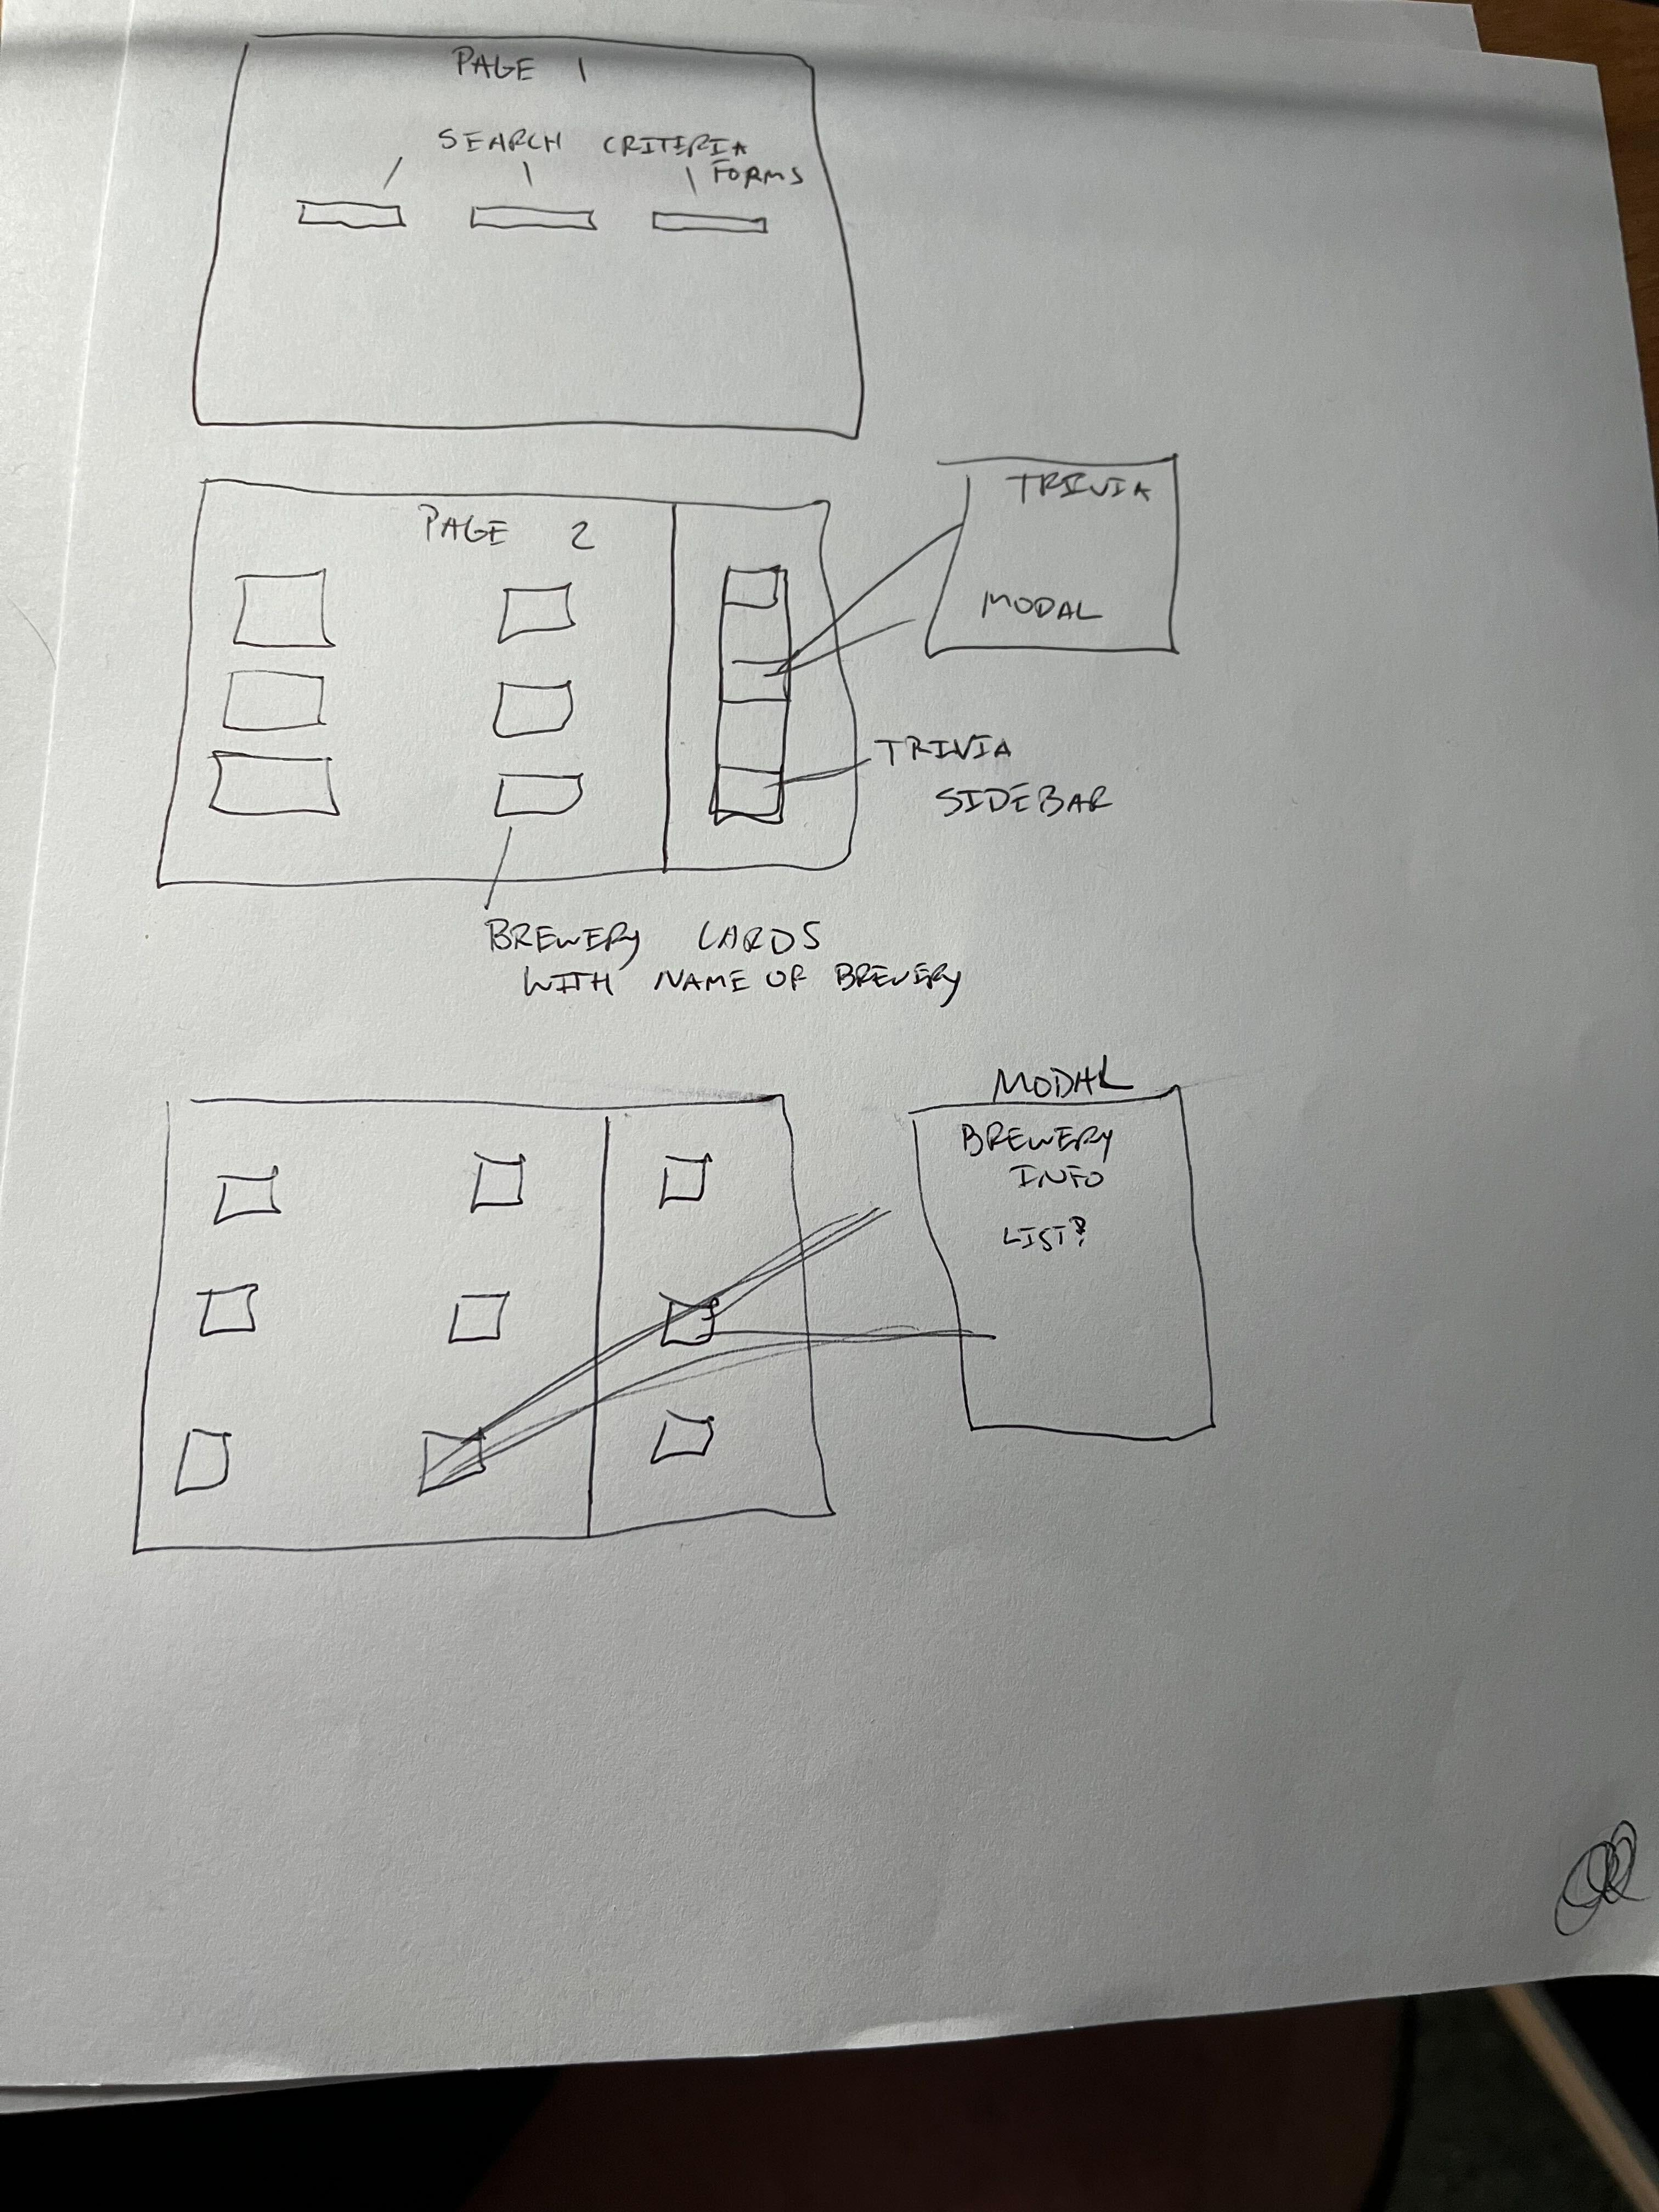 PAGE 1
SEARCH CRITERIA
FORMS
PAGE 2
TRIVIA
MODAL
TRIVIA
SIDEBAR
BREWERY CARDS
WITH NAME OF BREWERY
MODAL
BREWERY
INFO
LIST?